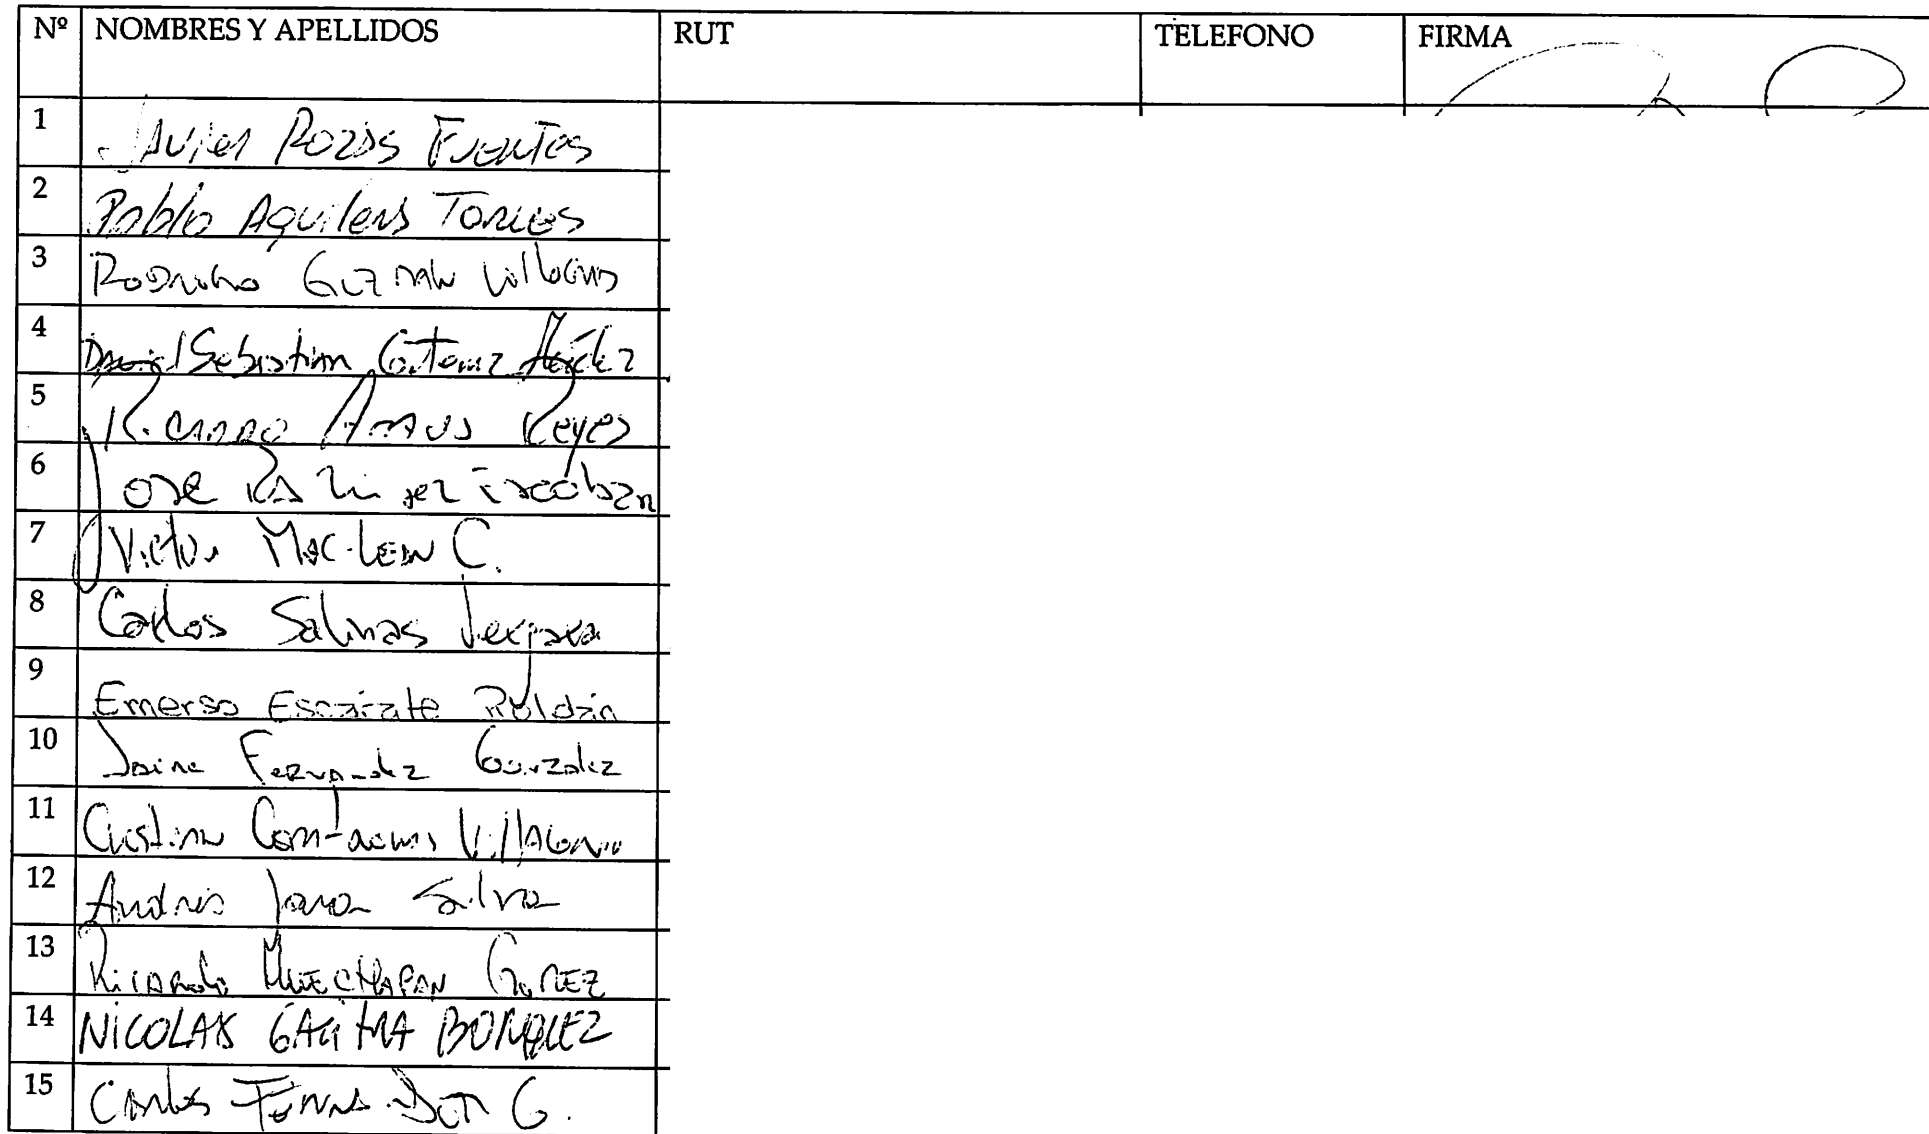 Nº NOMBRES Y APELLIDOS RUT TELEFONO FIRMA
1 Javier Rozas Fuentes
2 Pablo Aguilera Torres
3 Rodrigo Guzman
4 Daniel Sebastian
5 Ricardo Araus Reyes
6 Jose Escobar
7 Victor Mac-Lean C.
8 Carlos Salinas Vergara
9 Emerso Escárate Roldán
10 Jaime Fernandez Gonzalez
11 Cristian Contreras
12 Andres Jara Silva
13 Ricardo Huechapan Gomez
14 NICOLAS BORQUEZ
15 Carlos G.